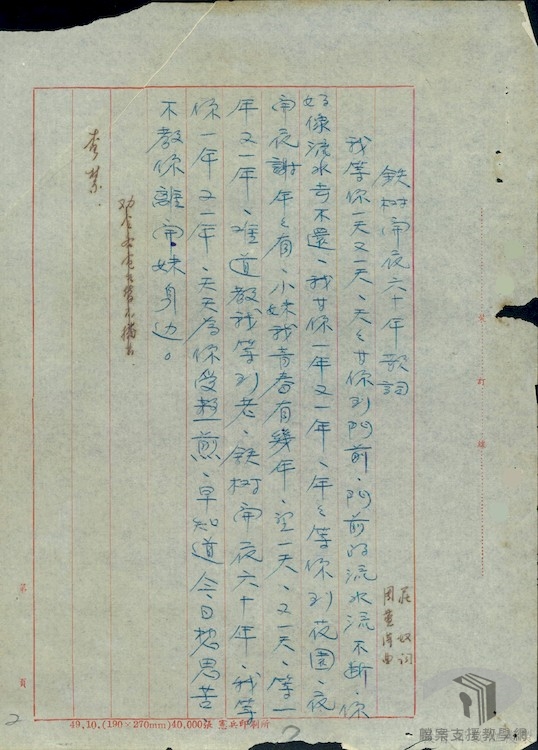 鉄树開花六十年歌詞
莊奴詞
周藍萍曲
我等你一天又一天、天々等你到門前、門前的流水流不断、你
好像流水去不還、我等你一年又一年、年々等你到花園、花
開花謝年々有、小妹我青春有幾年、望一天、又一天、等一
年又一年、难道教我等到老、鉄树開花六十年、我等
你一年又一年、天天為你受熬煎、早知道今日相思苦
不教你離開妹身边。
李
裝
訂
線
第
頁
49.10.(190×270mm)40,000張 憲兵印刷所
2
檔案支援教學網